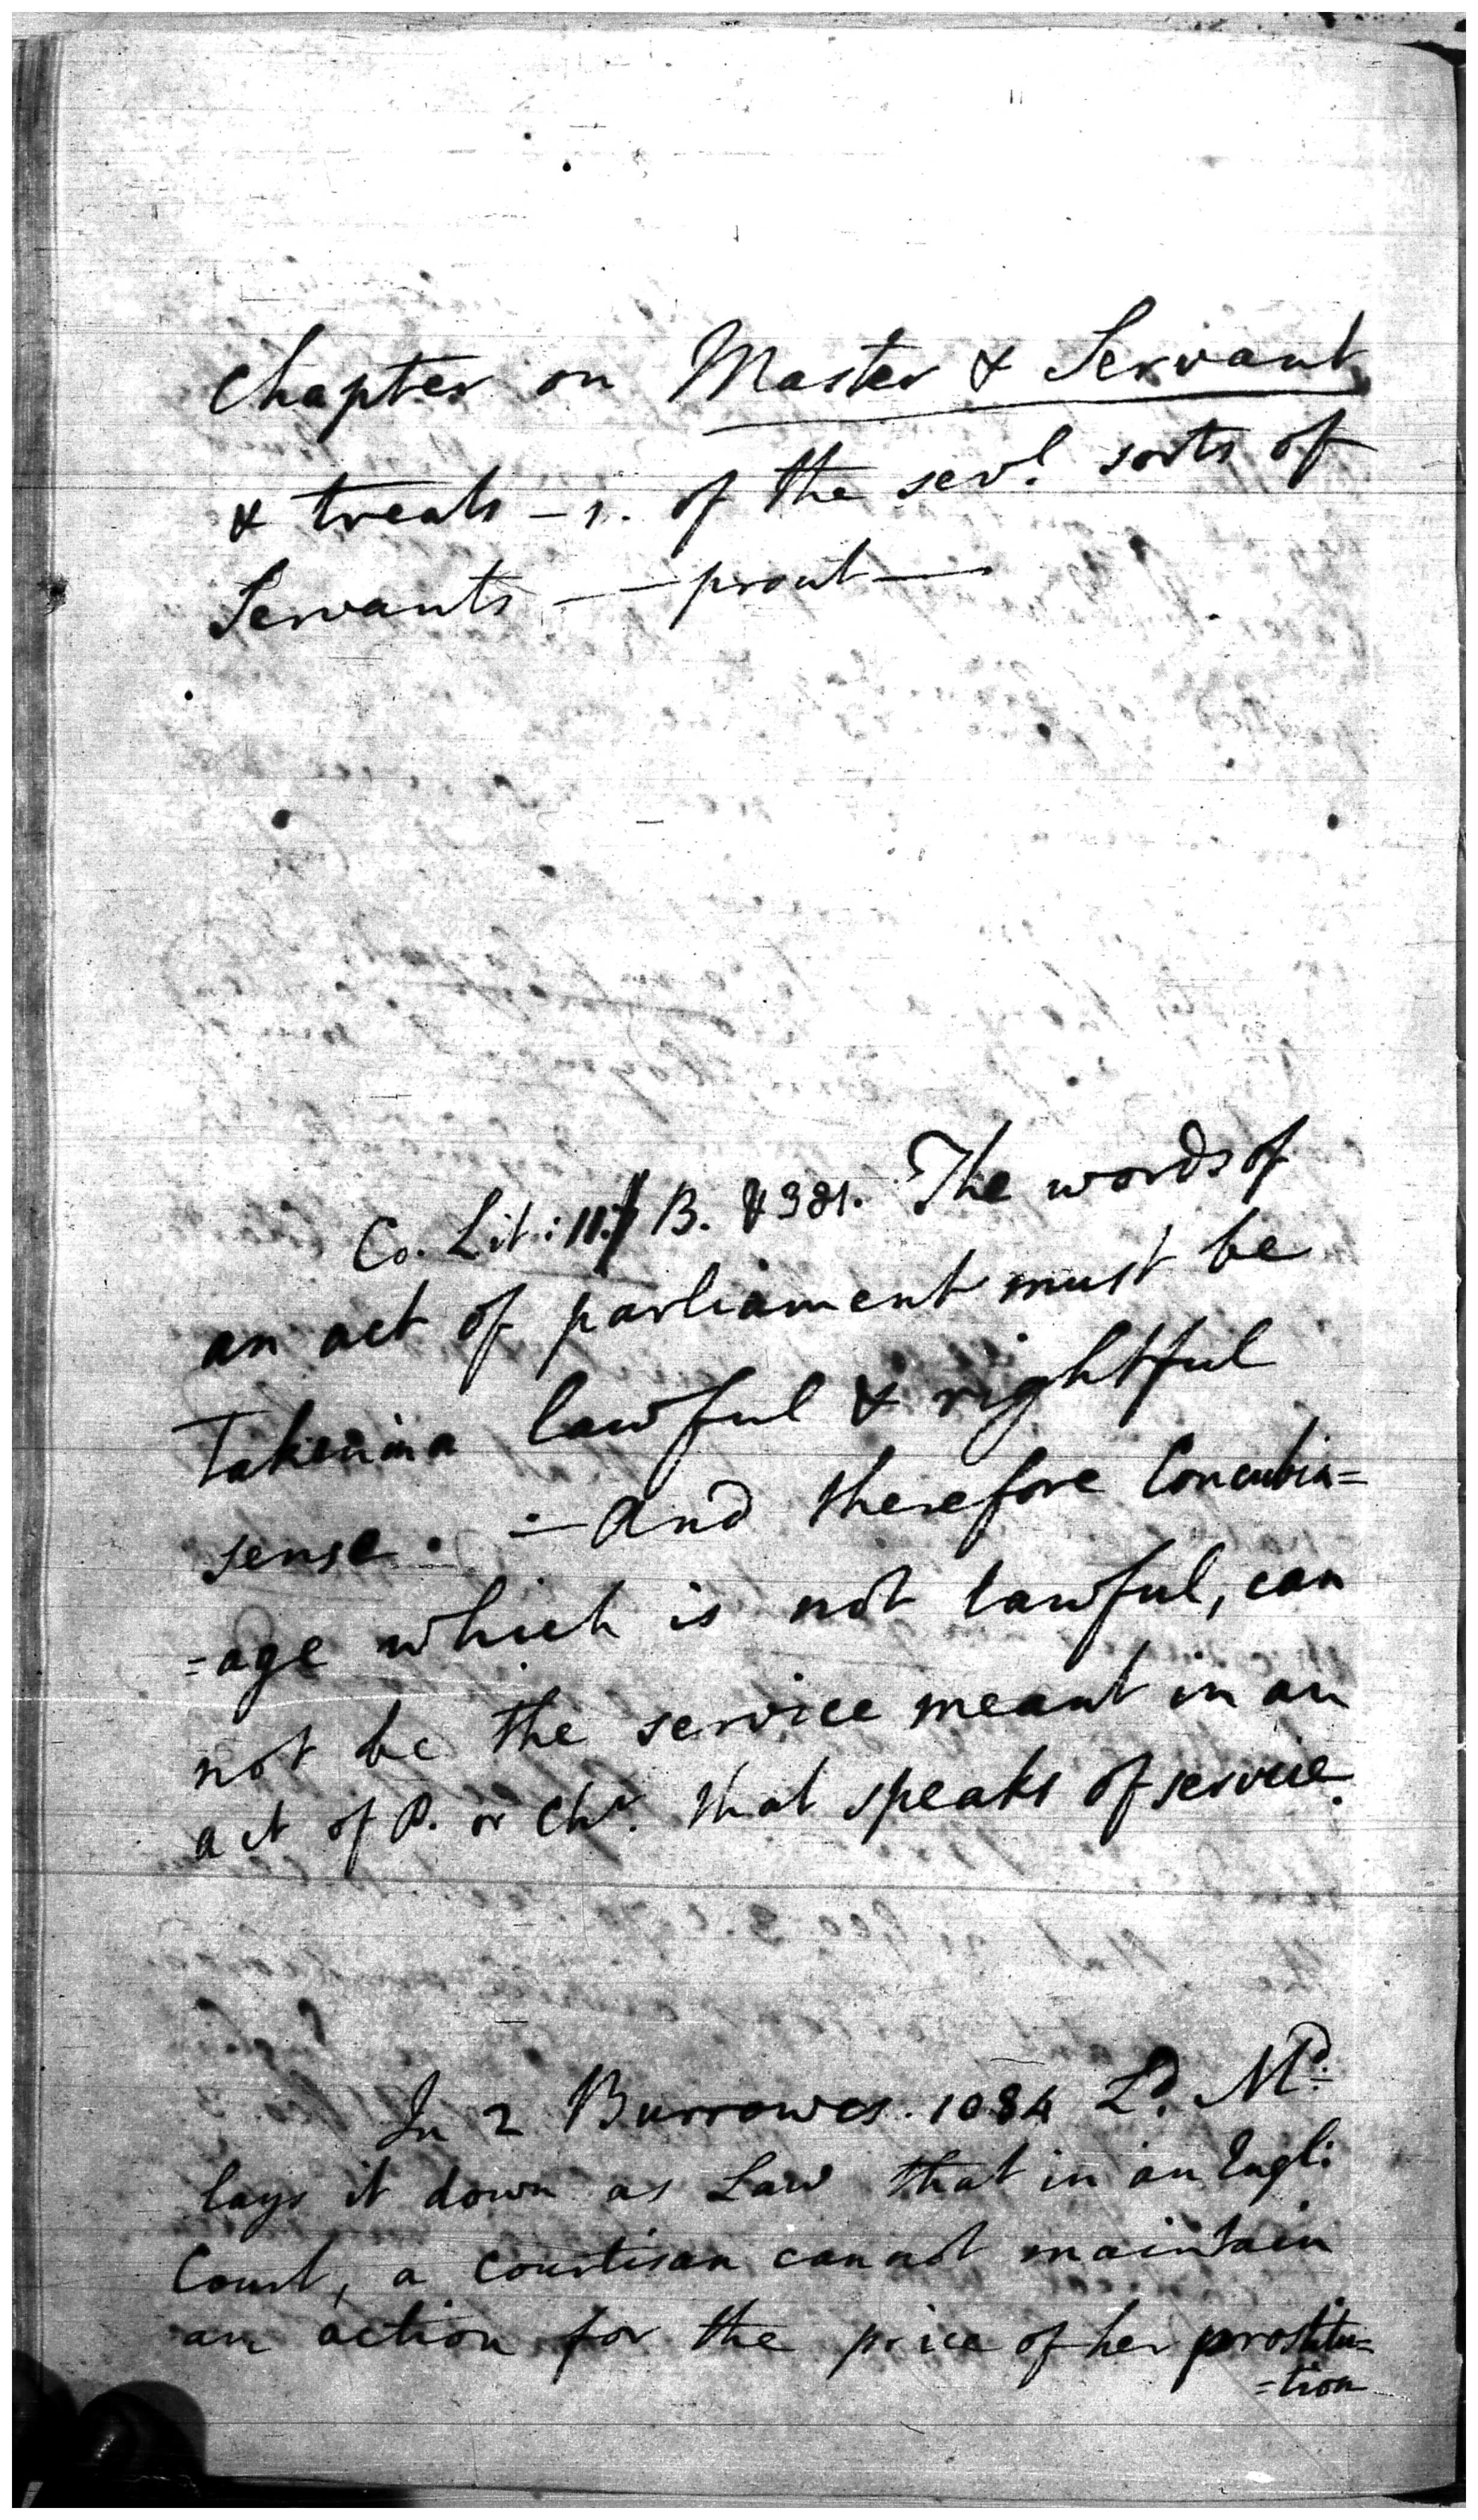 Chapter on Master & Servant,
& treats – 1. of the sev.l sorts of
Servants — prout —
Co. Lit: 11. B. & 381. The words of
an act of parliament must be
Taken in a lawful & rightful
sense. – And therefore Concubin=
=age which is not lawful, can
not be the service meant in an
act of P. or Chr. that speaks of service.
In 2 Burrowes. 1084 Ld. Md.
lays it down as Law that in an Engl:
Court, a Courtisan cannot maintain
an action for the price of her prostitu=
=tion